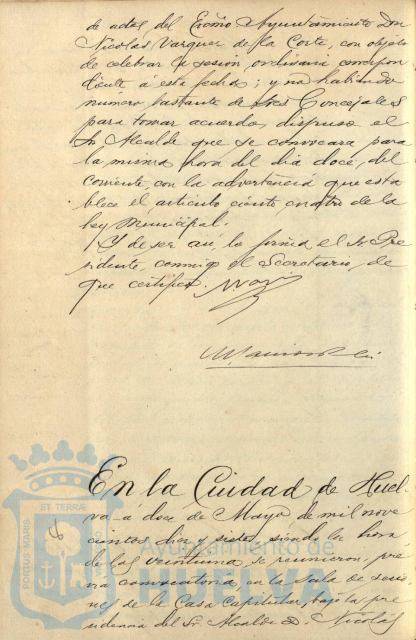 de actos del Excmo Ayuntamiento Don
Nicolas Vazquez de la Corte, con objeto
de celebrar la sesión ordinaria correspon
diente á esta fecha; y no habiendo
número bastante de Sres Concejales
para tomar acuerdo, dispuso el
Sr Alcalde que se convocara para
la misma hora del dia doce, del
corriente, con la advertencia que esta
blece el artículo ciento cuatro de la
ley Municipal.
Y de ser así, lo firma el Sr Pre
sidente, conmigo el Secretario, de
que certifico.
En la Ciudad de Huel
va á doce de Mayo de mil nove
cientos diez y siete, siendo la hora
de las veintiuna se reunieron, pré
via convocatoria, en la Sala de sesio
nes de la Casa Capitular, bajo la pre
sidencia del Sr Alcalde D. Nicolás
PORTUS MARIS ET TERRÆ
Ayuntamiento de
HUELVA